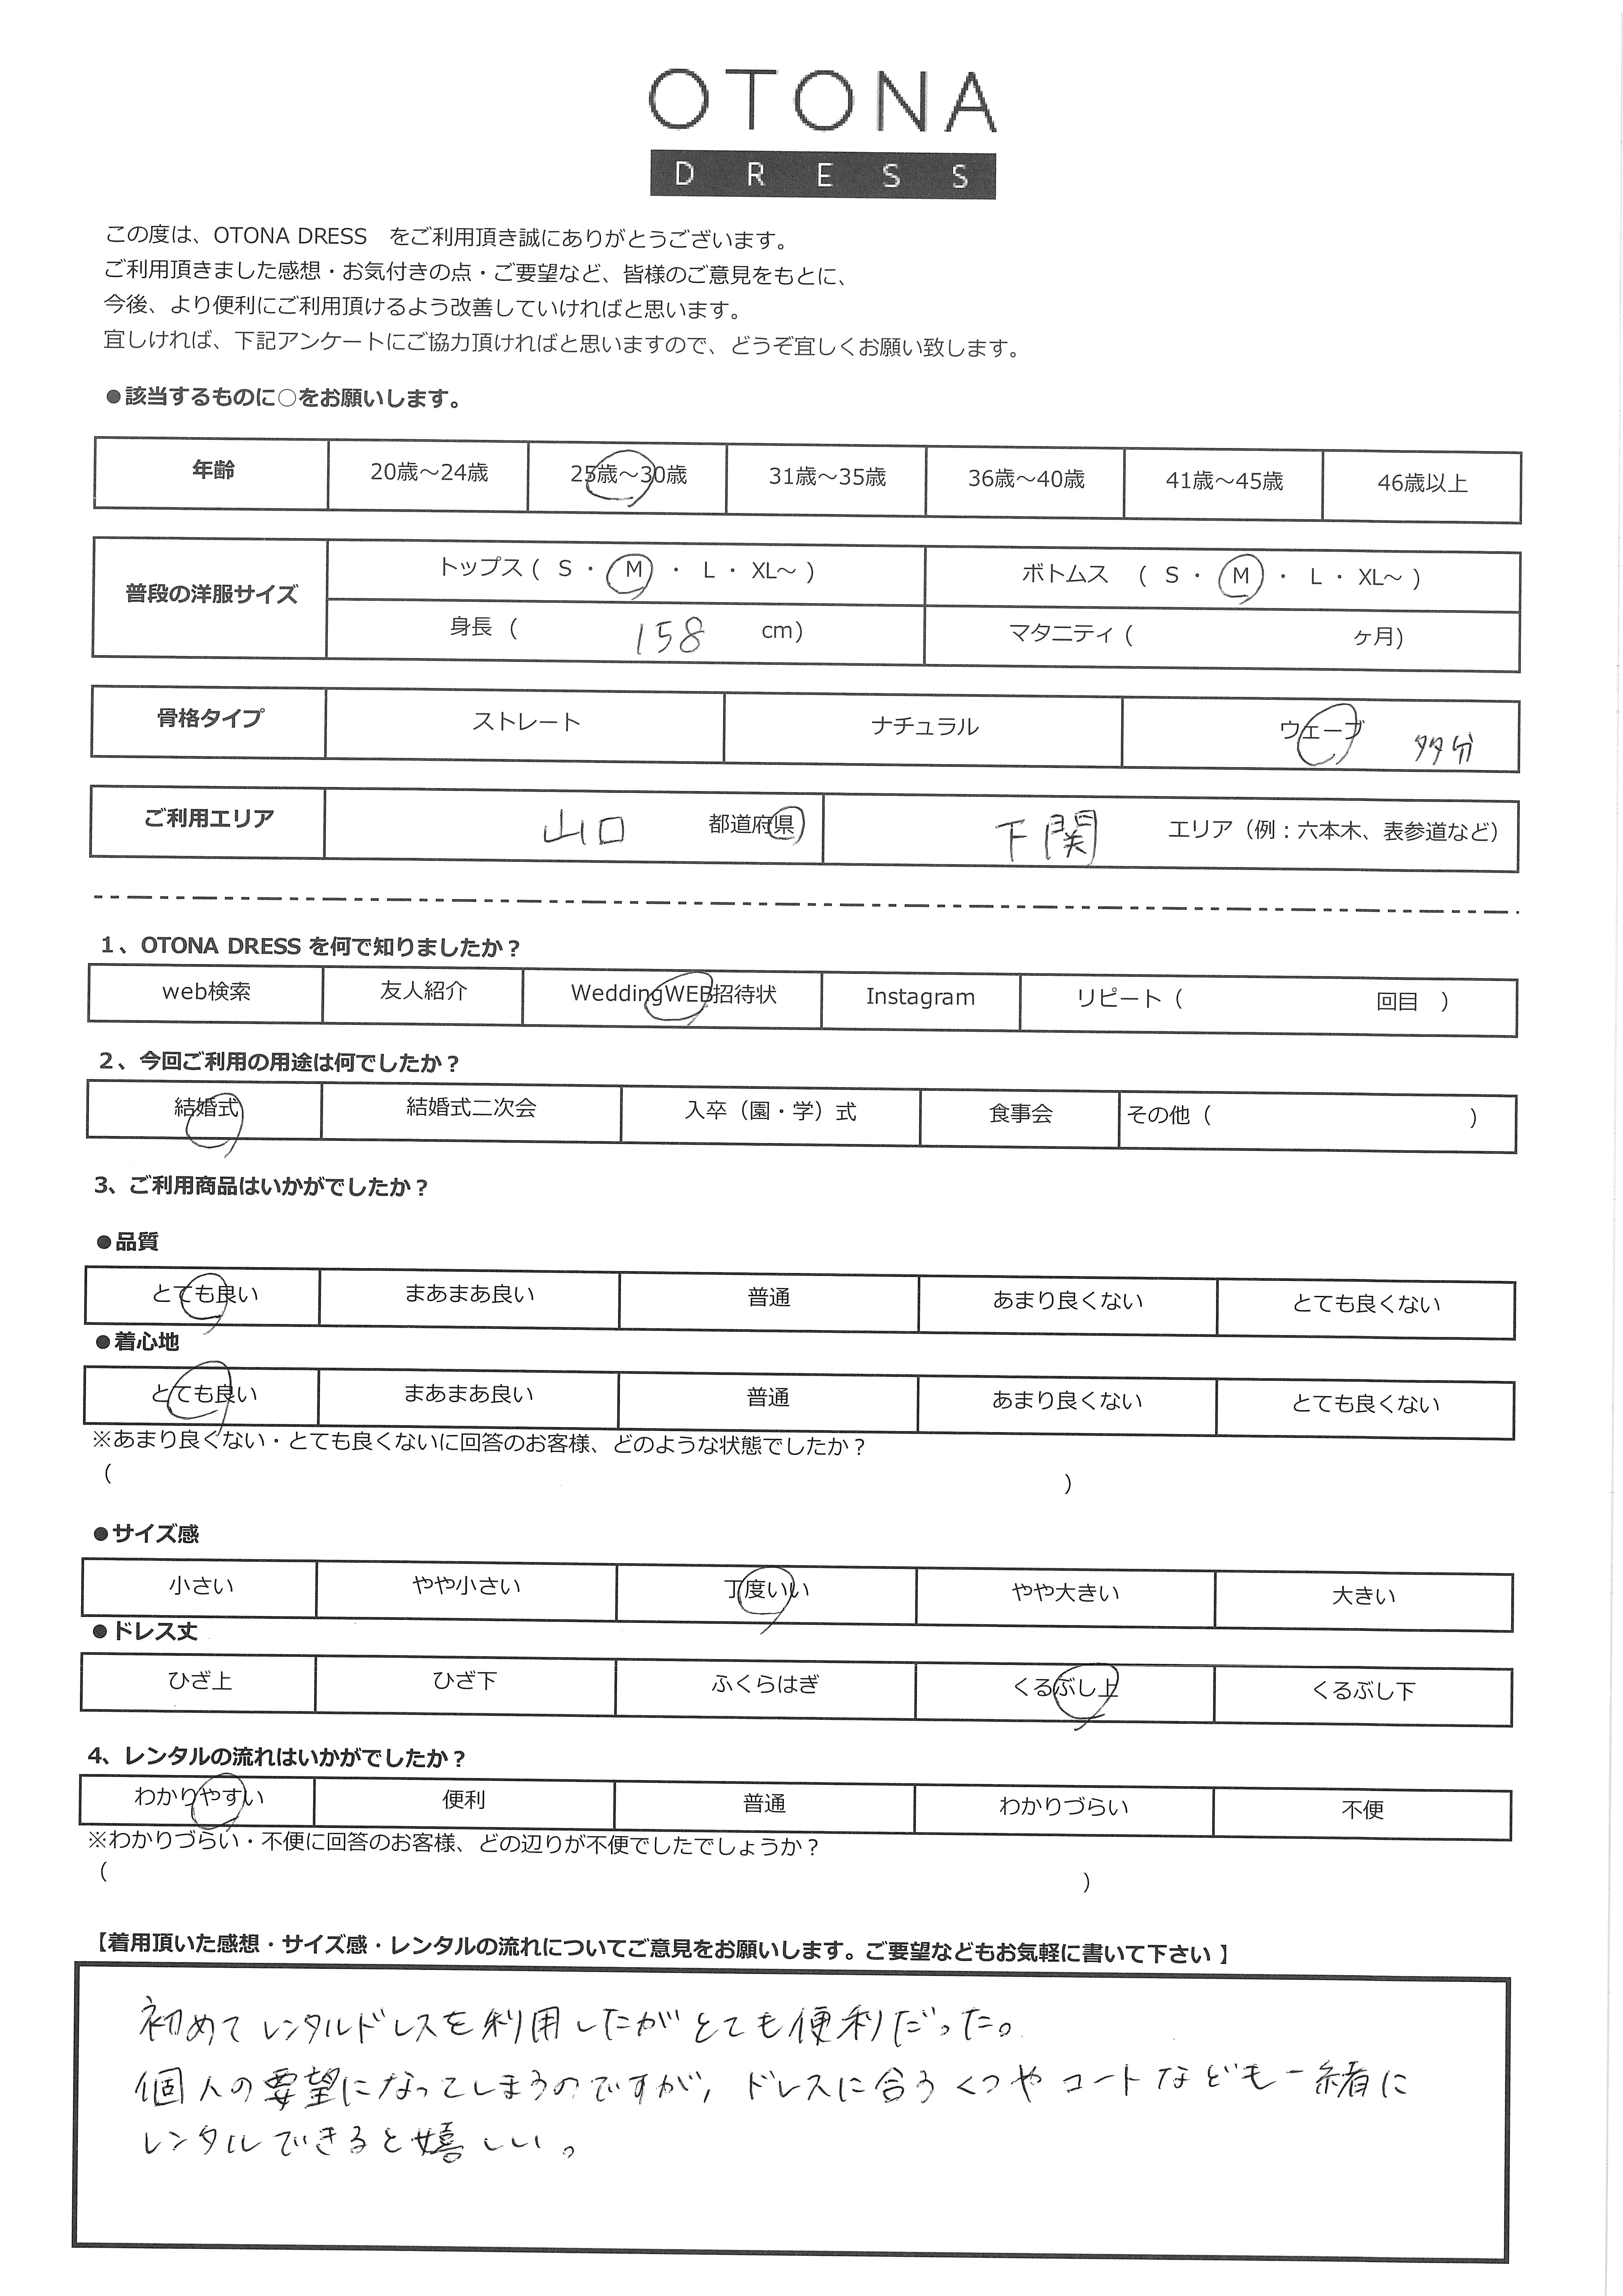 OTONA
DRESS
この度は、OTONA DRESS　をご利用頂き誠にありがとうございます。
ご利用頂きました感想・お気付きの点・ご要望など、皆様のご意見をもとに、
今後、より便利にご利用頂けるよう改善していければと思います。
宜しければ、下記アンケートにご協力頂ければと思いますので、どうぞ宜しくお願い致します。
●該当するものに○をお願いします。
年齢 20歳～24歳 25歳～30歳 31歳～35歳 36歳～40歳 41歳～45歳 46歳以上
普段の洋服サイズ
トップス ( S ・ M ・ L ・ XL～ ) ボトムス ( S ・ M ・ L ・ XL～ )
身長 ( 158 cm) マタニティ ( ヶ月)
骨格タイプ ストレート ナチュラル ウェーブ 多分
ご利用エリア 山口 都道府県 下関 エリア（例：六本木、表参道など）
1、OTONA DRESS を何で知りましたか？
web検索 友人紹介 WeddingWEB招待状 Instagram リピート（ 回目 ）
2、今回ご利用の用途は何でしたか？
結婚式 結婚式二次会 入卒（園・学）式 食事会 その他（ ）
3、ご利用商品はいかがでしたか？
●品質
とても良い まあまあ良い 普通 あまり良くない とても良くない
●着心地
とても良い まあまあ良い 普通 あまり良くない とても良くない
※あまり良くない・とても良くないに回答のお客様、どのような状態でしたか？
( )
●サイズ感
小さい やや小さい 丁度いい やや大きい 大きい
●ドレス丈
ひざ上 ひざ下 ふくらはぎ くるぶし上 くるぶし下
4、レンタルの流れはいかがでしたか？
わかりやすい 便利 普通 わかりづらい 不便
※わかりづらい・不便に回答のお客様、どの辺りが不便でしたでしょうか？
( )
【着用頂いた感想・サイズ感・レンタルの流れについてご意見をお願いします。ご要望などもお気軽に書いて下さい 】
初めてレンタルドレスを利用したがとても便利だった。
個人の要望になってしまうのですが、ドレスに合うくつやコートなども一緒に
レンタルできると嬉しい。